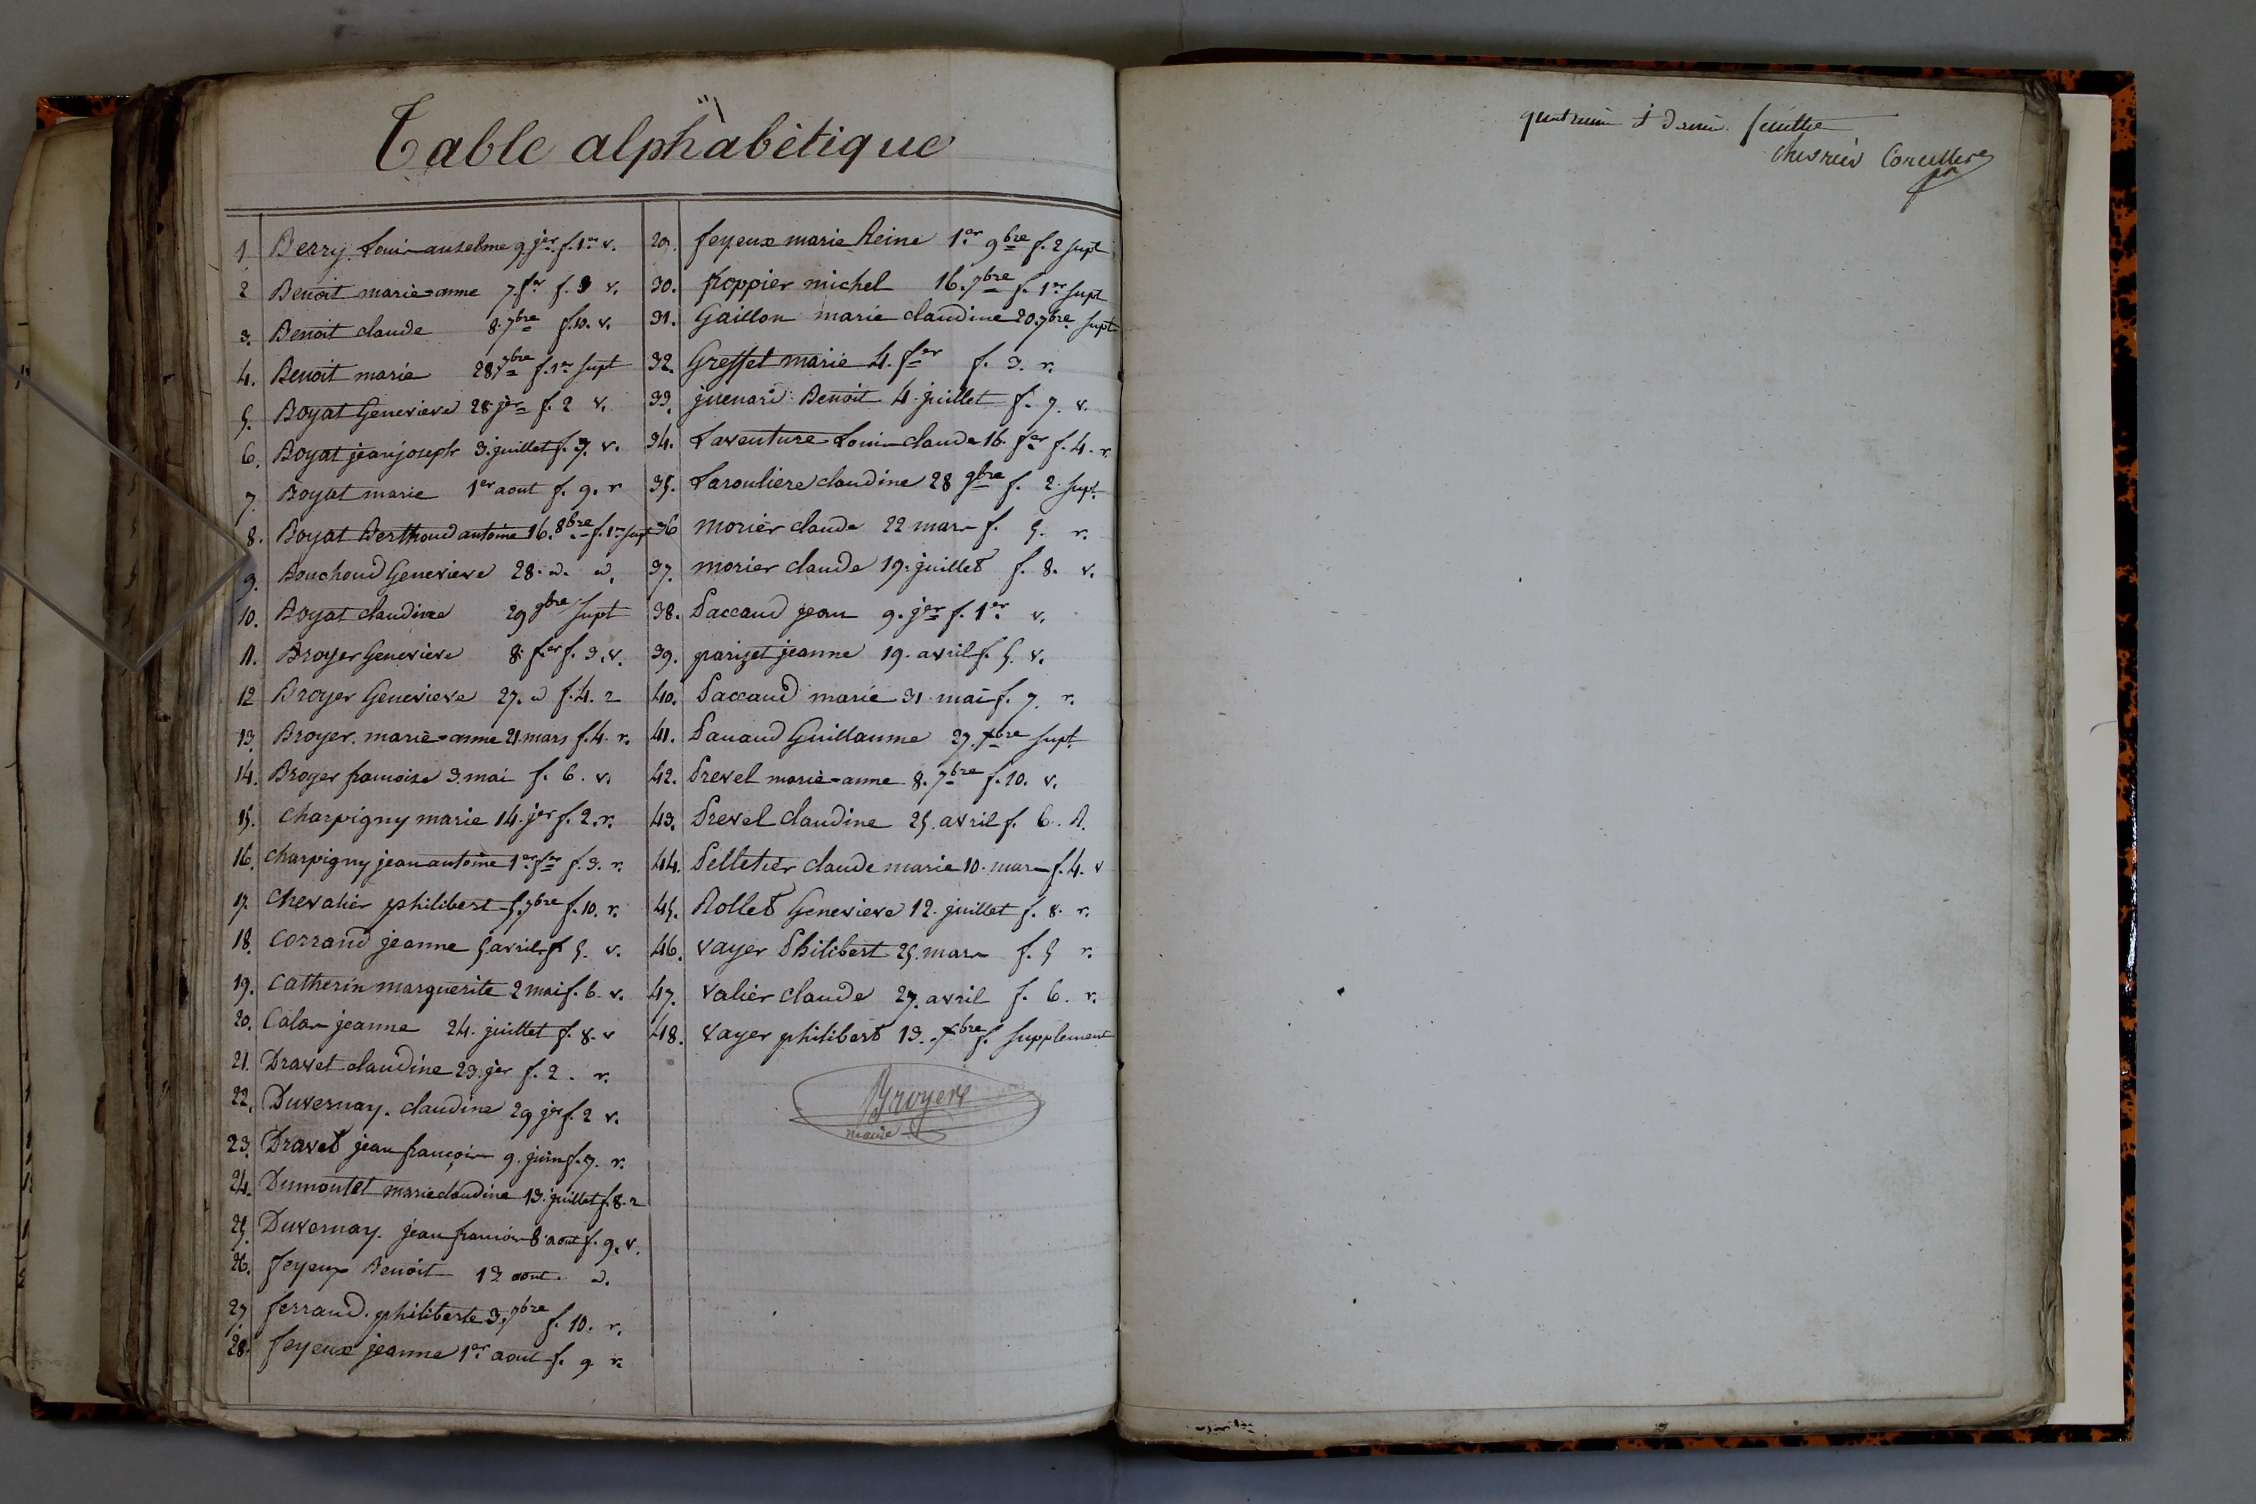 Table alphabétique
1. Berry. Louis anselme 9 jer. f. 1er v.
2. Benoit marie=anne 7. fer f. 3 v.
3. Benoit claude 8. 7bre f. 10. v.
4. Benoit marie 28 7bre f. 1er supt
5. Boyat Genevieve 28 jer f. 2 v.
6. Boyat jean joseph 3. juillet f. 7. v.
7. Boyat marie 1er aout f. 9. r
8. Boyat Berthoud antoine 16. 8bre f. 1er supt
9. Bouchoud Genevieve 28. d. d.
10. Boyat claudine 29 9bre supt
11. Broyer Genevieve 8. fer f. 3. v.
12 Broyer Genevieve 27. d f. 4. r
13. Broyer. marie=anne 21. mars f. 4. r.
14. Broyer francoise 3. mai f. 6. v.
15. Charpigny marie 14. jer f. 2. r.
16. charpigny jean antoine 1er fer f. 3. r.
17. Chevalier philibert 5. 7bre f. 10. r.
18. Corrand jeanne 5 avril f 5. v.
19. Catherin marguerite 2 mai f. 6. v.
20. Calas jeanne 24. juillet f. 8. v
21. Dravet claudine 23. jer f. 2. r.
22. Duvernay. claudine 29 jer f. 2 v.
23. Dravet jean françois 9. juin f. 7. r.
24. Dumontet marie claudine 13. juillet f. 8. r
25. Duvernay. jean francois 8. aout f. 9. v.
26. feyeux Benoit 12 aout. d.
27. ferrand. philiberte 3. 7bre f. 10. r.
28. feyeux jeanne 1er aout f. 9 r.
29. feyeux marie Reine 1er 9bre f. 2 supt
30. froppier michel 16. 7bre f. 1er supt
31. Gaillon marie claudine 20. 7bre. supt
32. Greffet marie 4. fer f. 3. r.
33. juenard Benoit 4. juillet f. 7. v.
34. Laventure Louis claude 16. fer f. 4. r.
35. Larouliere claudine 28 9bre f. 2. supt.
36 morier claude 22 mars f. 5. r.
37. morier claude 19. juillet f. 8. v.
38. Paccaud jean 9. jer f. 1er v.
39. parizet jeanne 19. avril f. 5. v.
40. Paccaud marie 31. mai f. 7. r.
41. Pauaud Guillaume 27. xbre supt.
42. Prevel marie=anne 8. 7bre f. 10. v.
43. Prevel claudine 25. avril f. 6. R.
44. Pelletier claude marie 10. mars f. 4. v
45. Rollet Genevieve 12. juillet f. 8. r.
46. vayer Philibert 25. mars f. 5 r.
47. valier claude 27. avril f. 6. r.
48. vayer philibert 13. xbre f. supplement
Broyere
maire
feuillet